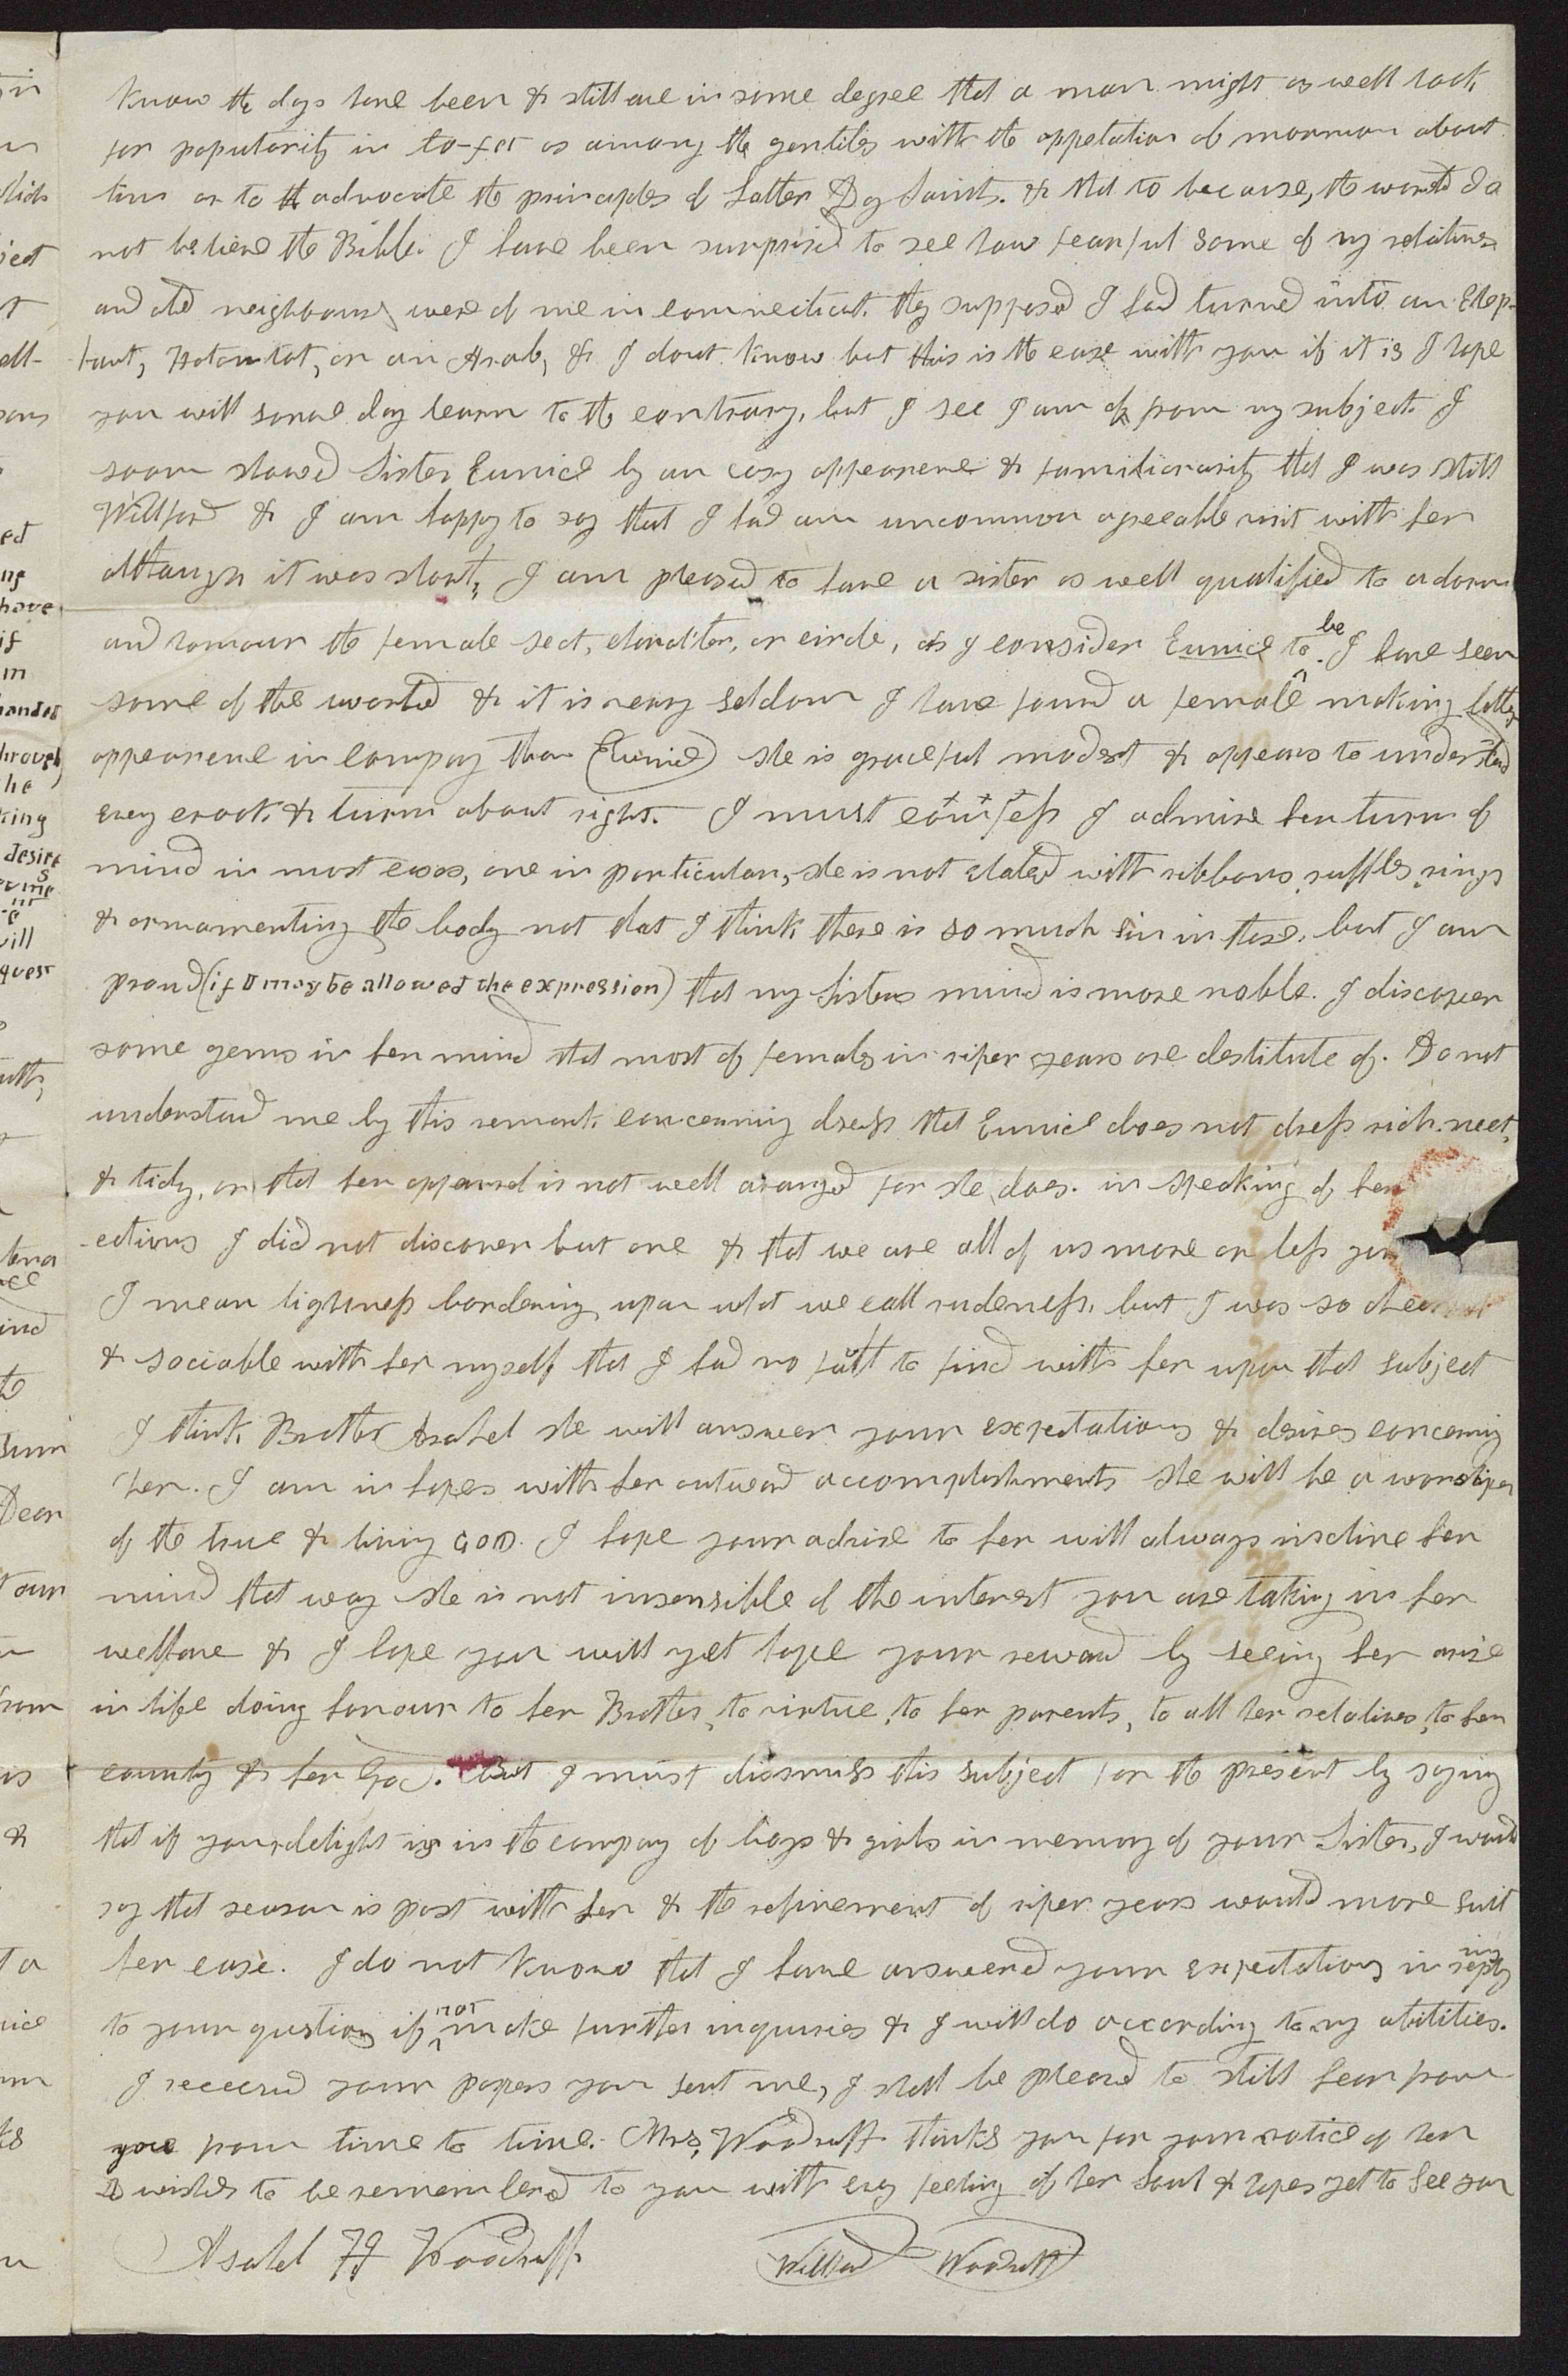 Know the days have been & still are in some degree that a man might as well look
for popularity in to-fet as among the gentiles with the appelation of mormon about
him or to advocate the principles of Latter Day Saints. & that to because, the world do
not believe the Bible. I have been surprised to see how fearful some of my relatives
and old neighbours were of me in connecticut. they supposed I had turned into an Elep-
hant, Hotentot, or an Arab, & I dont know but this is the case with you if it is I hope
you will some day learn to the contrary, but I see I am of from my subject. I
soon showed Sister Eunice by an easy appearence & familiararity that I was still
Willford & I am happy to say that I had an uncommon agreeable visit with her
although it was short, I am pleased to have a sister as well qualified to adorn
and honour the female sect, character, or circle, as I consider Eunice to be. I have seen
some of the world & it is very seldom I have found a female making better
appearence in company than (Eunice) she is graceful modest & appears to understand
evry crook & turn about right. I must confess I admire her turn of
mind in most cases, one in particular, she is not elated with ribbons, ruffles, rings
& ornamenting the body not that I think there is so much sin in these, but I am
proud (if I may be allowed the expression) that my Sisters mind is more noble. I discover
some gems in her mind that most of females in riper years are destitute of. Do not
understand me by this remark concerning dress that Eunice does not dress rich, neet,
& tidy, or that her apparel is not well aranged for she does. in speaking of her
ections I did not discover but one & that we are all of us more or less
I mean lightness bordering upon what we call rudeness, but I was so
& sociable with her myself that I had no falt to find with her upon that subject
I think Brother Asahel she will answer your expectations & desires concerning
her. I am in hopes with her outward accomplishments she will be a worshiper
of the true & living GOD. I hope your advise to her will always incline her
mind that way she is not insensible of the interest you are taking in her
welfare & I hope you will yet reape your reward by seeing her arise
in life doing honour to her Brother, to virtue, to her parents, to all her relatives, to her
county & her God. But I must dissmiss this subject for the present by saying
that if your delight is in the company of boys & girls in memory of your Sister, I would
say that season is past with her & the refinement of riper years would more suit
her case. I do not know that I have answered your expectations in my reply
to your qustions if not make further inquiries & I will do according to my abilities.
I receeved your papers you sent me, I shall be pleased to still hear from
you from time to time. Mrs, Woodruff thinks you for your notice of her
& wishes to be remembered to you with evry feeling of her Soul & hopes yet to See you
Asahel H Woodruff. Willford Woodruff